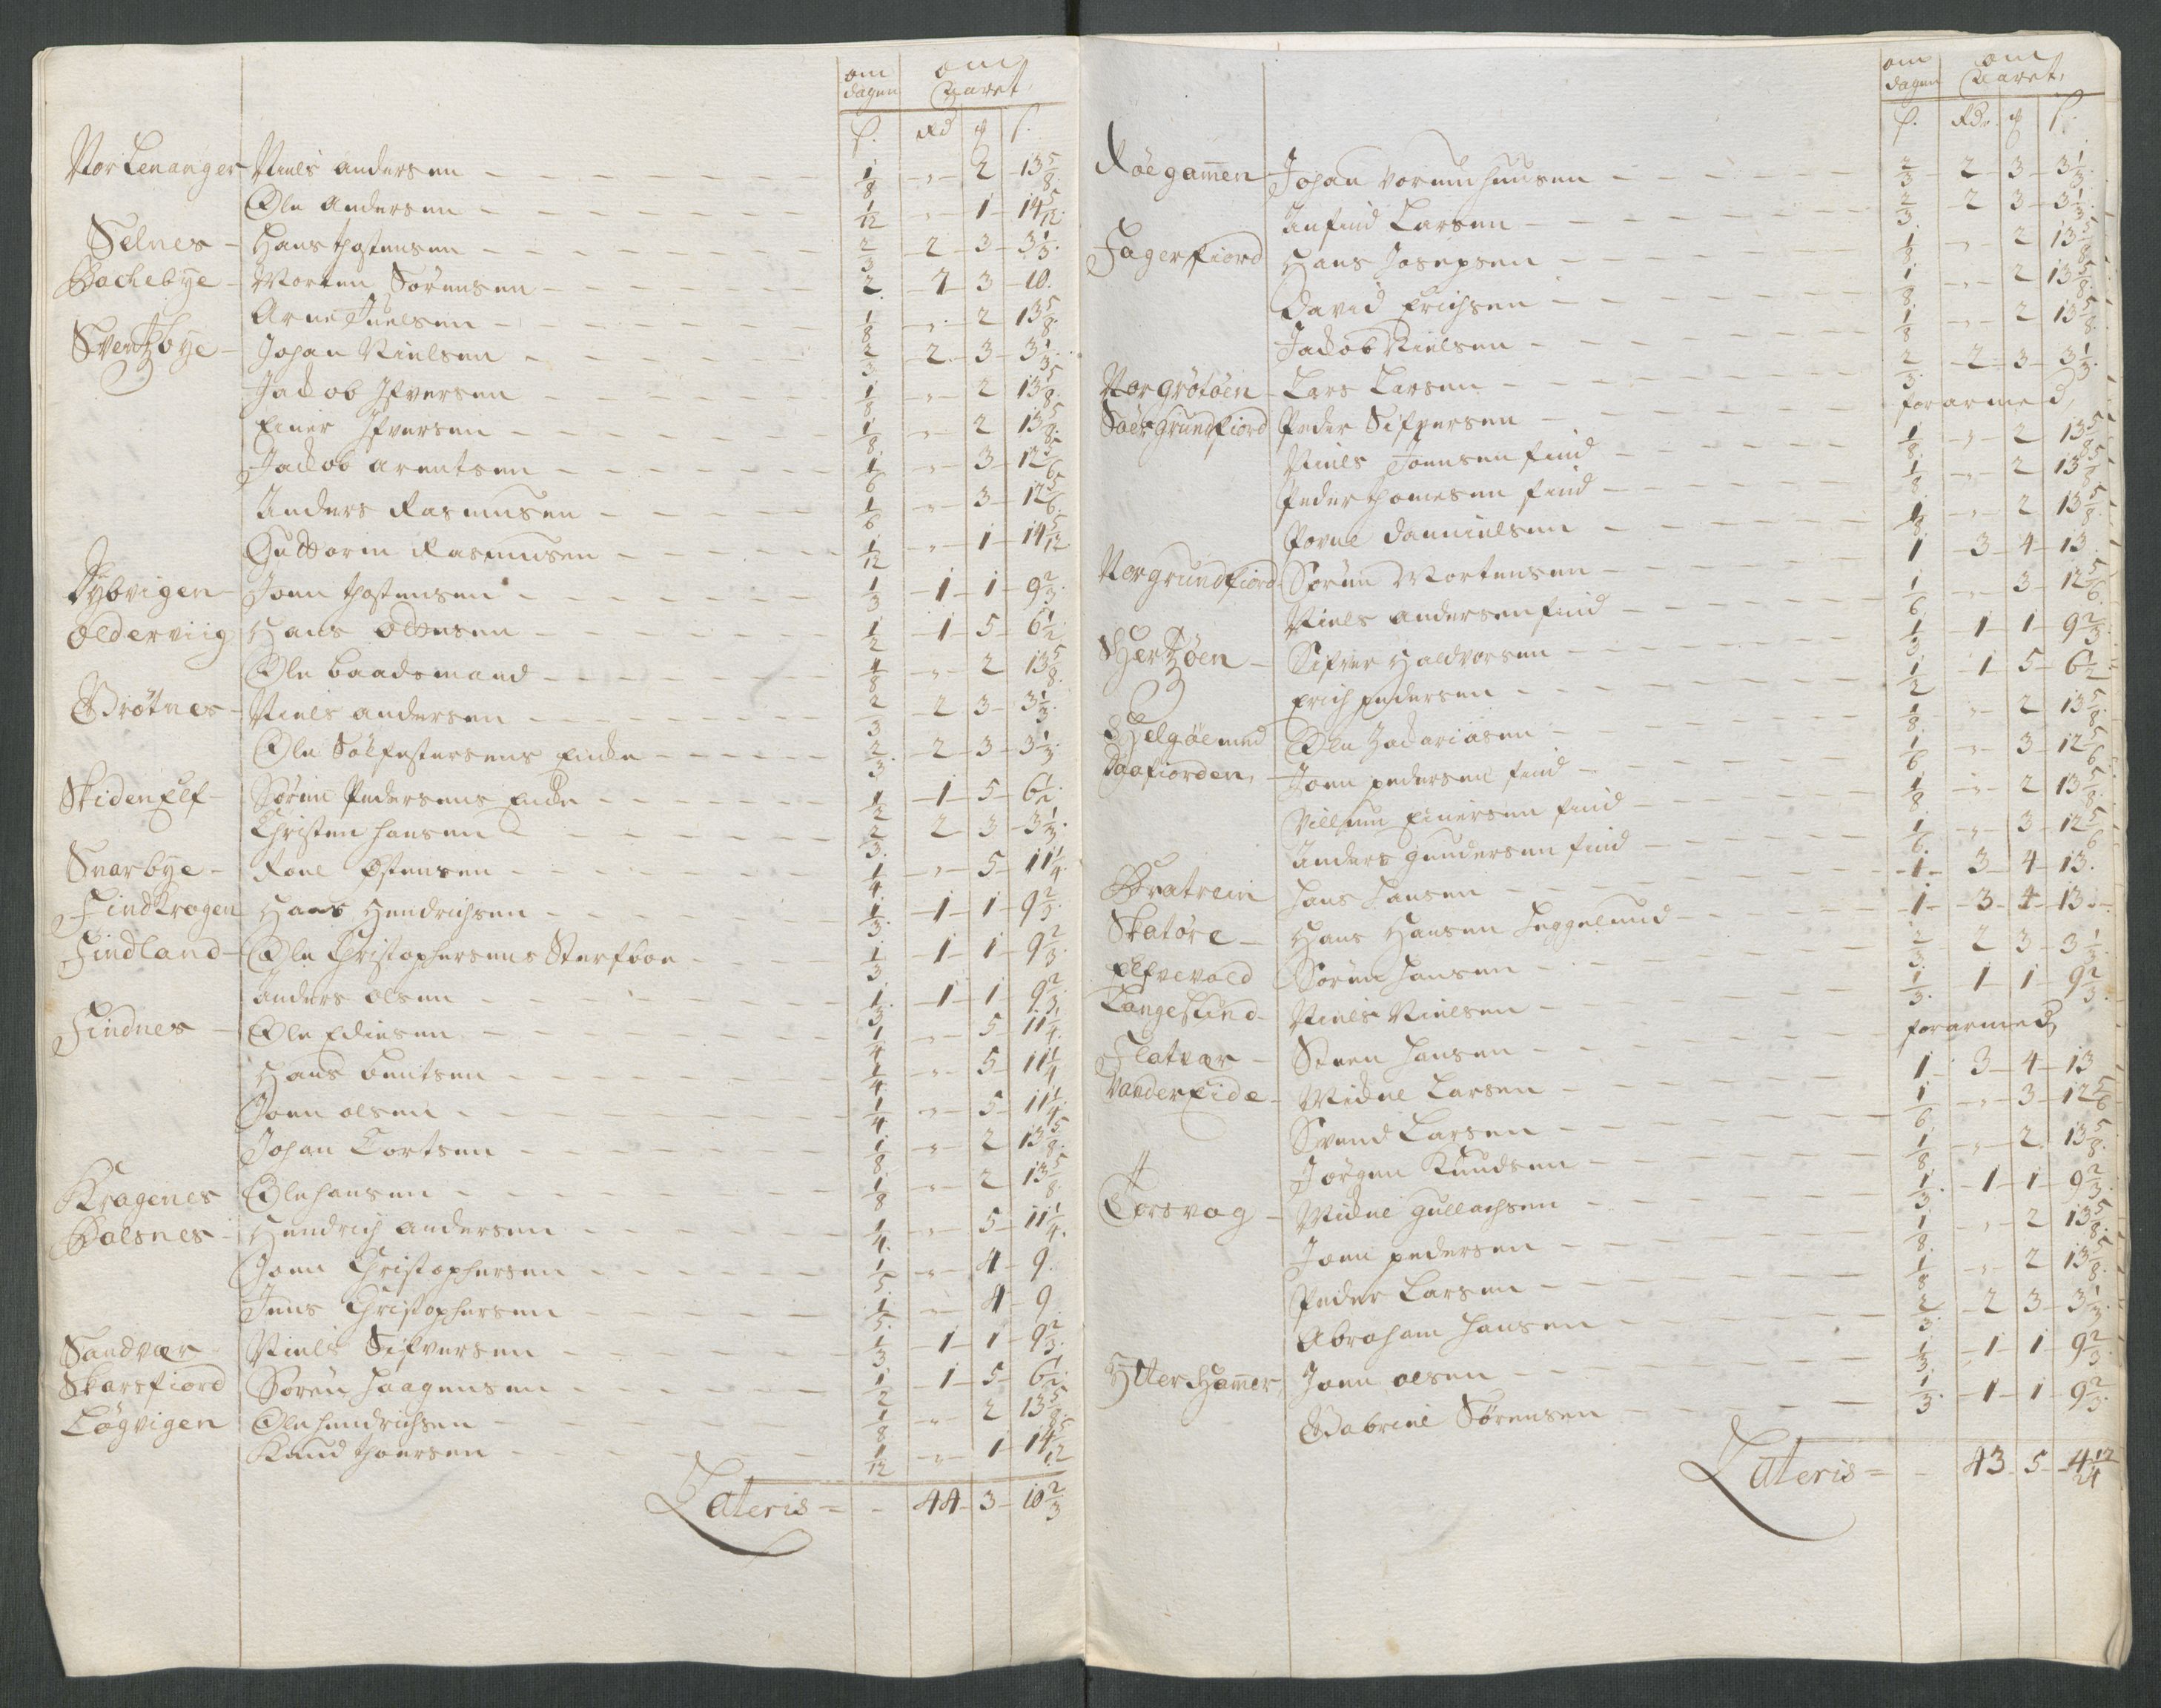 om dagen om Aaret
ſ. Rd ꝶ ſ.
Nor Lenanger Niels andersen 1/8 - „ - 2 - 13 5/8
Ole Andersen 1/12 - „ - 1 - 14 5/12
Selnes Hans thostensen 2/3 - 2 - 3 - 3 1/3
Bachebye Morten Sørensen 2 - 7 - 3 - 10
Arne Juelsen 1/8 - „ - 2 - 13 5/8
Svendtzbye Johan Nielsen 2/3 - 2 - 3 - 3 1/3
Jackob Ifversen 1/8 - „ - 2 - 13 5/8
Einer Ifversen 1/8 - „ - 2 - 13 5/8
Jackob arentsen 1/6 - „ - 3 - 12 5/6
Anders Rasmusen 1/6 - „ - 3 - 12 5/6
Guttorm Rasmusen 1/12 - „ - 1 - 14 5/12
Dybvigen Joen thostensen 1/3 - 1 - 1 - 9 2/3
Olderviig Hans Ottesen 1/2 - 1 - 5 - 6 1/2
Ole baadsmand 1/8 - „ - 2 - 13 5/8
Grøtnes Niels andersen 2/3 - 2 - 3 - 3 1/3
Ole Sølfestersens Encke 2/3 - 2 - 3 - 3 1/3
Skidenelf Søren Pedersens Encke 1/2 - 1 - 5 - 6 1/2
Christen hansen 2/3 - 2 - 3 - 3 1/3
Snarbye Roel Østensen 1/4 - „ - 5 - 11 1/4
Findkrogen Hans Hendrichsen 1/3 - 1 - 1 - 9 2/3
Findland Ole Christophersens Sterfboe 1/3 - 1 - 1 - 9 2/3
Anders olsen 1/3 - 1 - 1 - 9 2/3
Findnes Ole Ediesen 1/4 - „ - 5 - 11 1/4
Hans bentsen 1/4 - „ - 5 - 11 1/4
Joen olsen 1/4 - „ - 5 - 11 1/4
Johan Cortsen 1/8 - „ - 2 - 13 5/8
Kragenes Ole hansen 1/8 - „ - 2 - 13 5/8
Balsnes Hendrich andersen 1/4 - „ - 5 - 11 1/4
Joen Christophersen 1/5 - „ - 4 - 9
Jens Christophersen 1/5 - „ - 4 - 9
Sandvær Niels Sifversen 1/3 - 1 - 1 - 9 2/3
Skarsfiord Søren haagensen 1/2 - 1 - 5 - 6 1/2
Løgvigen Ole hendrichsen 1/8 - „ - 2 - 13 5/8
Knud thoersen 1/12 - „ - 1 - 14 5/12
Lateris = - 44 - 3 - 10 2/3
om dagen om Aaret
ſ. Rd. ꝶ ſ.
Røegamen Johan Vormhuusen 2/3 - 2 - 3 - 3 1/3
Anfind Larsen 2/3 - 2 - 3 - 3 1/3
Fagerfiord Hans Josepsen 1/8 - „ - 2 - 13 5/8
David Erichsen 1/8 - „ - 2 - 13 5/8
Jackob Nielsen 1/8 - „ - 2 - 13 5/8
Nor grøtøen Lars Larsen 2/3 - 2 - 3 - 3 1/3
Søer grundfiord Peder Sifversen forarmed
Niels Joensen find 1/8 - „ - 2 13 5/8
Peder thomesen find 1/8 - „ - 2 13 5/8
Povel Dannielsen 1/8 - „ - 2 13 5/8
Nor grundfiord Søren Mortensen 1 - 3 - 4 - 13
Niels andersen find 1/6 - „ - 3 - 12 5/6
Hertzøen Sifver Haldvorsen 1/3 - 1 - 1 - 9 2/3
Erich pedersen 1/2 - 1 - 5 - 6 1/2
Helgøe med Ole Zacariasen 1/8 - „ - 2 13 5/8
Daafiorden Joen pedersen find 1/6 - „ - 3 - 12 5/6
Villum Einersen find 1/8 - „ - 2 13 5/8
Anders gundersen find 1/6 - „ - 3 - 12 5/6
Bratrein Hans hansen - 1 - 3 - 4 - 13
Skatøre Hans Hansen Leggelund - 1 - 3 - 4 - 13
Elfvevold Søren hansen 2/3 - 2 - 3 - 3 1/3
Langesund Niels Nielsen 1/3 - 1 - 1 - 9 2/3
Flatvær Steen hansen forarmed
Vandereide Mickel Larsen 1 - 3 - 4 - 13
Svend Larsen 1/6 - „ - 3 - 12 5/6
Jørgen Knudsen 1/8 - „ - 2 13 5/8
Torsvog Mickel gullachsen 1/3 - 1 - 1 - 9 2/3
Joen pedersen 1/8 - „ - 2 13 5/8
Peder Larsen 1/8 - „ - 2 13 5/8
Abraham hansen 2/3 - 2 3 - 3 1/3
Ytter Hamer Joen olsen 1/3 - 1 - 1 - 9 2/3
Gabriel Sørensen 1/3 - 1 - 1 - 9 2/3
Lateris = - 43 - 5 - 4 12/24